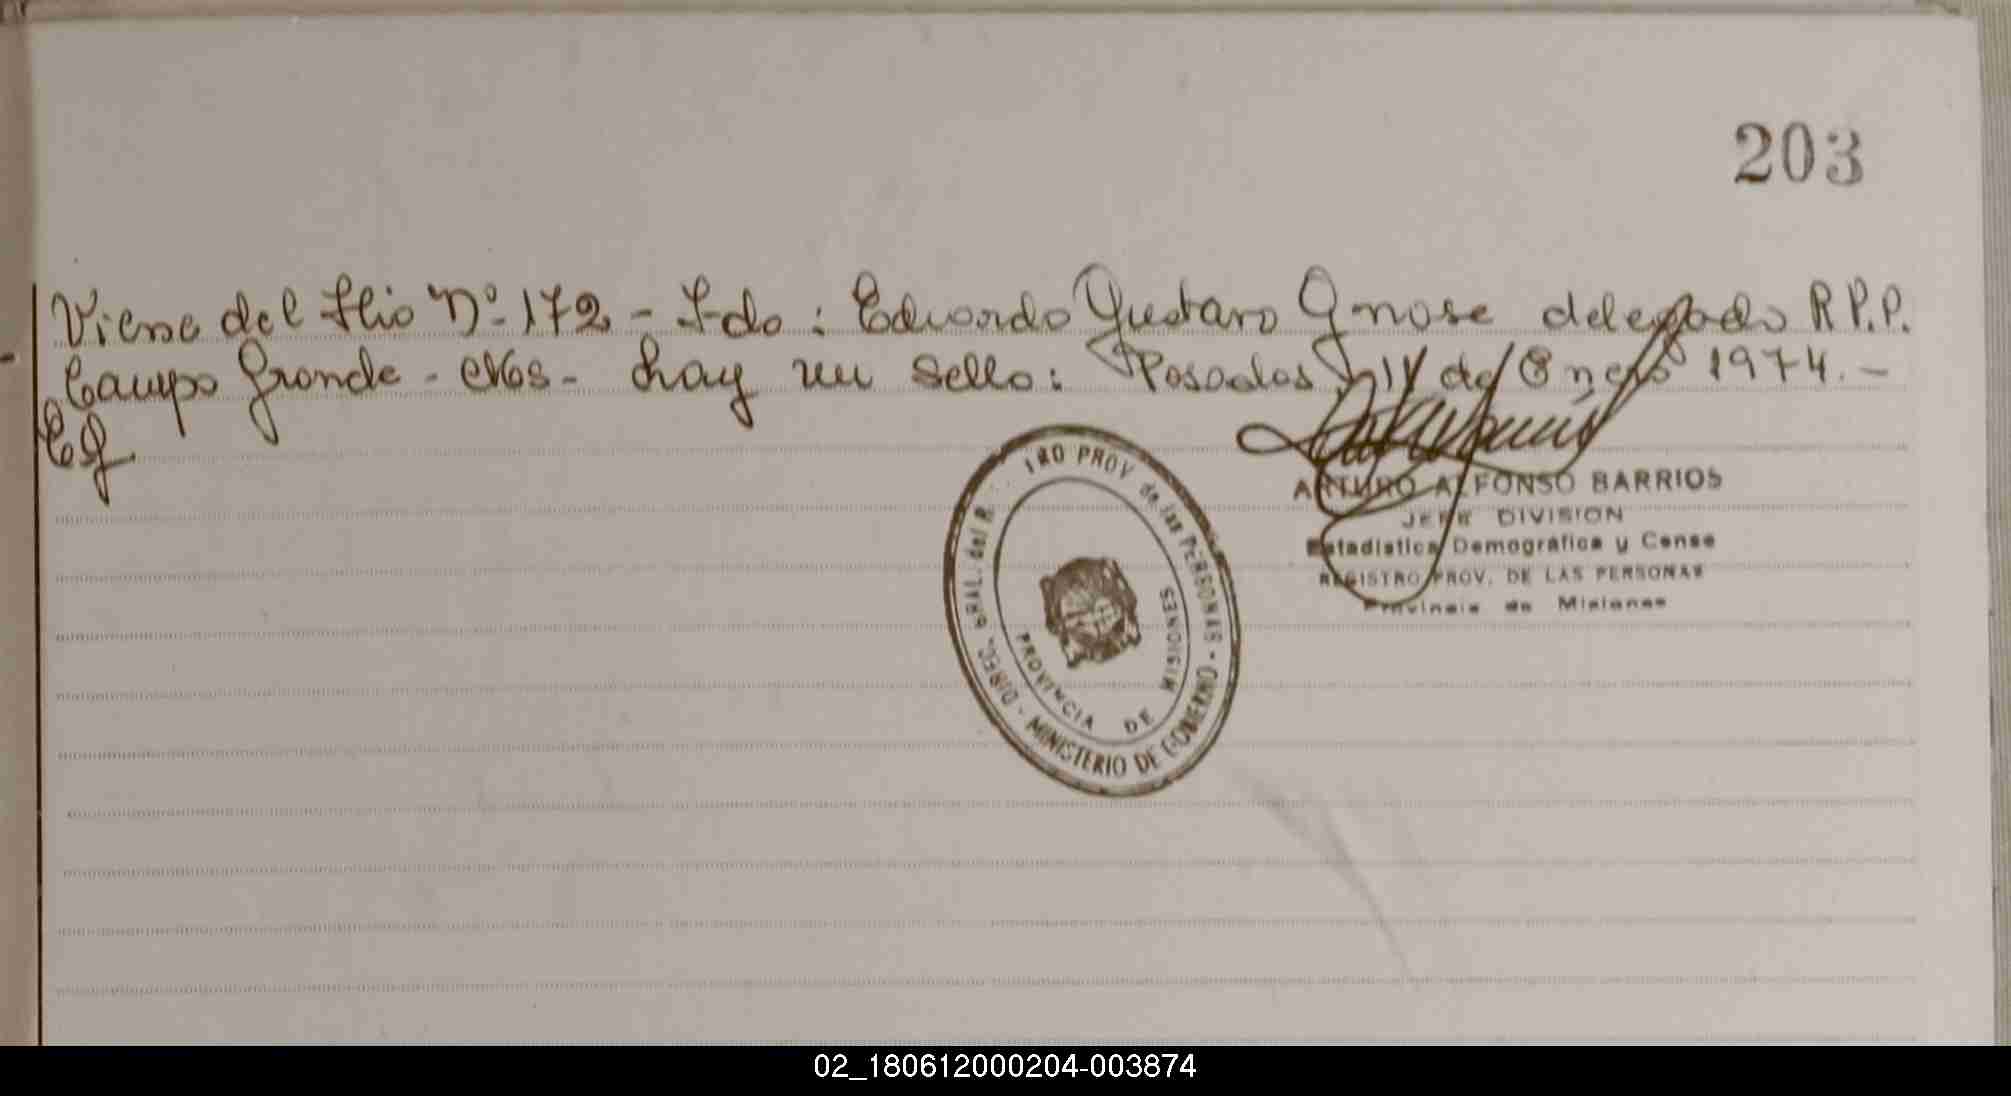 203
Viene del flio Nº 172 - Fdo: Eduardo Gustavo Gnose delegado R P.P.
Campo Grande - Mes - hay un sello: Posadas, de Enero 1974.-
ARTURO ALFONSO BARRIOS
JEFE DIVISION
Estadistica Demográfica y Censo
REGISTRO PROV. DE LAS PERSONAS
Provincia de Misiones
DIREC. GRAL. del R TRO PROV de las PERSONAS - MINISTERIO DE GOBIERNO -
PROVINCIA DE MISIONES
02_180612000204-003874